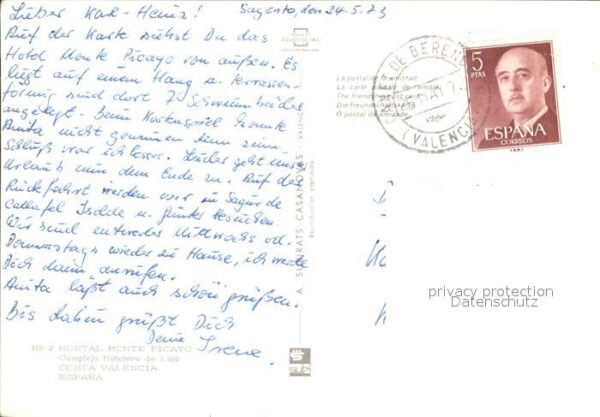 Lieber Karl-Heinz! Sagunto, den 24.5.73
Auf der Karte siehst Du das
Hotel Monte Picayo von außen. Es
liegt auf einem Hang u. terrassen-
förmig sind dort 7 Schwimmbäder
angelegt. Beim Kartenspiel konnte
Anita nicht gewinnen denn zum
Schluß war ich besser. Leider geht unser
Urlaub nun dem Ende zu. Auf der
Rückfahrt werden wir in
Calafel Isolde u. Günter besuchen.
Wir sind entweder Mittwochs od.
Donnerstags wieder zu Hause, ich werde
Dich dann anrufen.
Anita läßt auch schön grüßen.
Bis dahin grüßt Dich
Deine Irene.
Nº 2 HOSTAL MONTE PICAYO
Complejo Hotelero de Lujo
COSTA VALENCIA
ESPAÑA
A. SUBIRATS CASANOVAS - VALENCIA
La postal de la amistad
La carte postale de l'amitié
The friendship postcard
Die freundschaftskarte
O postal da amizade
DE BEREN
(VALENCIA)
5
PTAS
ESPAÑA
CORREOS
privacy protection
Datenschutz